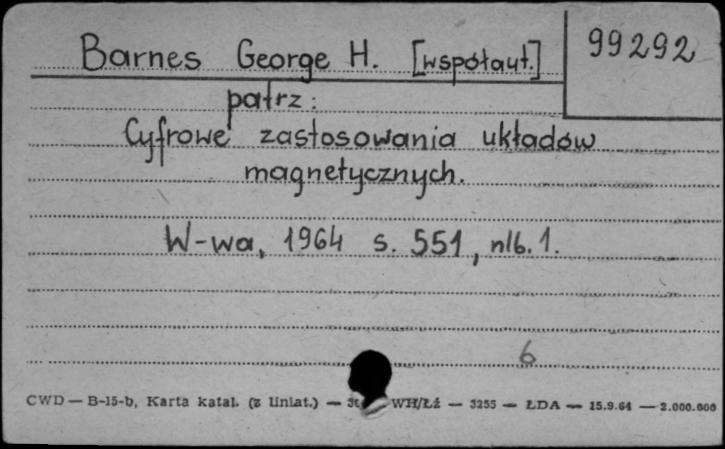 Barnes George H. [współaut.] 99292
patrz:
Cyfrowe zastosowania układów
magnetycznych.
W-wa, 1964 s. 551, nlb. 1.
6
CWD — B-15-b, Karta katal. (z liniat.) — WH/Łż — 3255 — ŁDA — 15.9.64 — 2.000.000